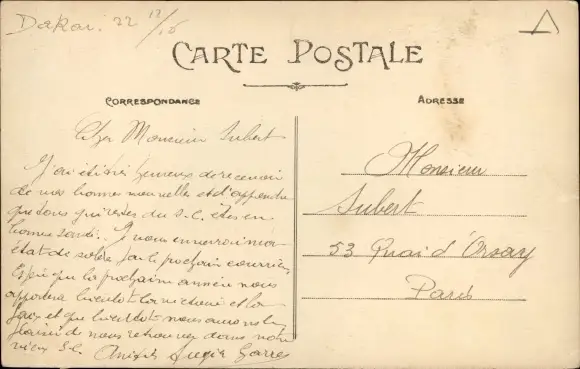 Dakar. 22 12/16
CARTE POSTALE
CORRESPONDANCE
ADRESSE
Cher Monsieur Jubert
J'ai été très heureux de recevoir
de vos bonnes nouvelles et d'apprendre
que tous qui restez du S.C. êtes en
bonne santé. Je vous enverrai mon
état de solde par le prochain courrier.
Espér que la prochaine année nous
apportera bientôt la victoire et la
paix et que bientôt nous aurons le
plaisir de nous retrouver dans notre
vieux S.C. Amitiés
Monsieur
Jubert
53 Quai d'Orsay
Paris